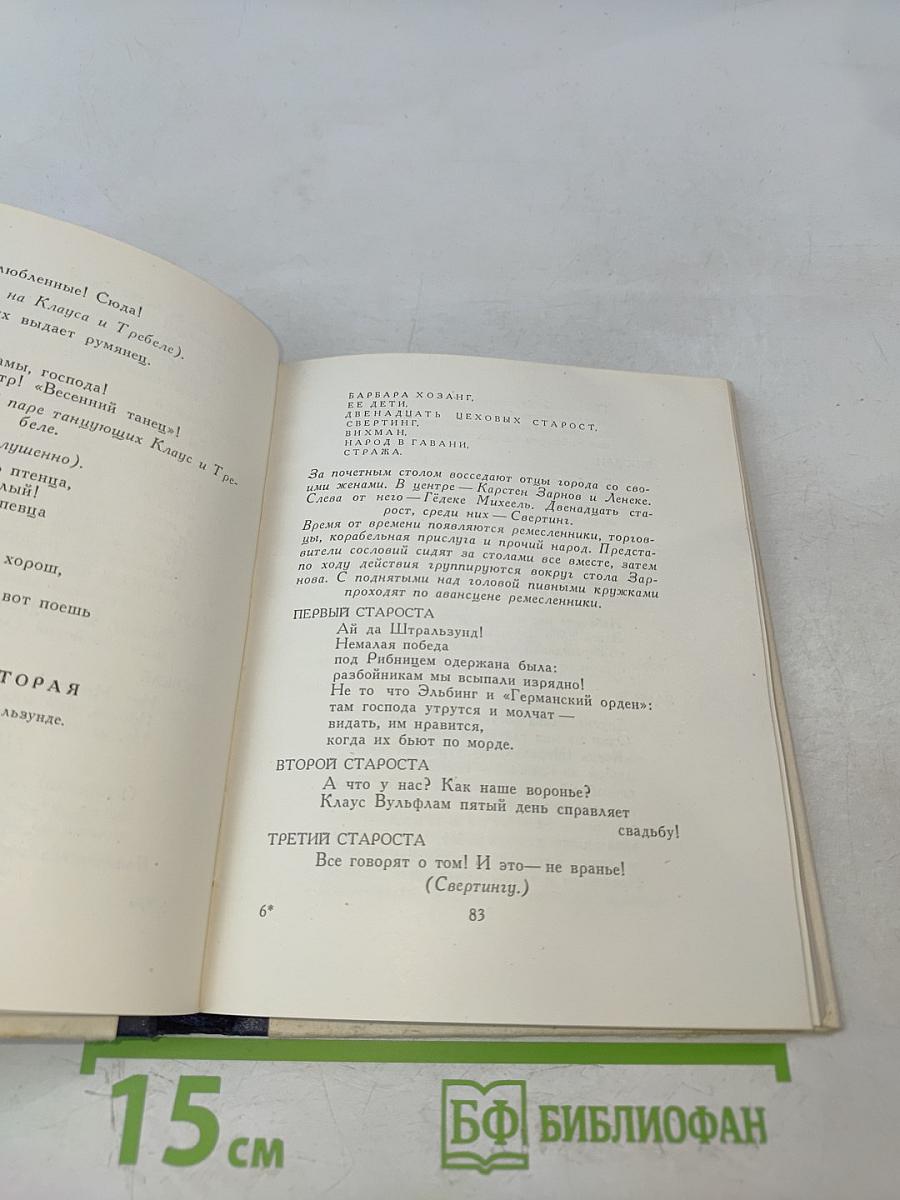 любленные! Сюда!
на Клауса и Требеле).
х выдает румянец.
амы, господа!
тр! «Весенний танец»!
паре танцующих Клаус и Тре-
беле.
лушенно).
птенца,
лый!
певца
хорош,
вот поешь
ТОРАЯ
льзунде.
БАРБАРА ХОЗАНГ,
ЕЕ ДЕТИ,
ДВЕНАДЦАТЬ ЦЕХОВЫХ СТАРОСТ,
СВЕРТИНГ,
ВИХМАН,
НАРОД В ГАВАНИ,
СТРАЖА.
За почетным столом восседают отцы города со сво-
ими женами. В центре — Карстен Зарнов и Ленеке.
Слева от него — Гёдеке Михеель. Двенадцать ста-
рост, среди них — Свертинг.
Время от времени появляются ремесленники, торгов-
цы, корабельная прислуга и прочий народ. Предста-
вители сословий сидят за столами все вместе, затем
по ходу действия группируются вокруг стола Зар-
нова. С поднятыми над головой пивными кружками
проходят по авансцене ремесленники.
ПЕРВЫЙ СТАРОСТА
Ай да Штральзунд!
Немалая победа
под Рибницем одержана была:
разбойникам мы всыпали изрядно!
Не то что Эльбинг и «Германский орден»:
там господа утрутся и молчат —
видать, им нравится,
когда их бьют по морде.
ВТОРОЙ СТАРОСТА
А что у нас? Как наше воронье?
Клаус Вульфлам пятый день справляет
свадьбу!
ТРЕТИЙ СТАРОСТА
Все говорят о том! И это — не вранье!
(Свертингу.)
6*
83
15 см
БФ БИБЛИОФАН